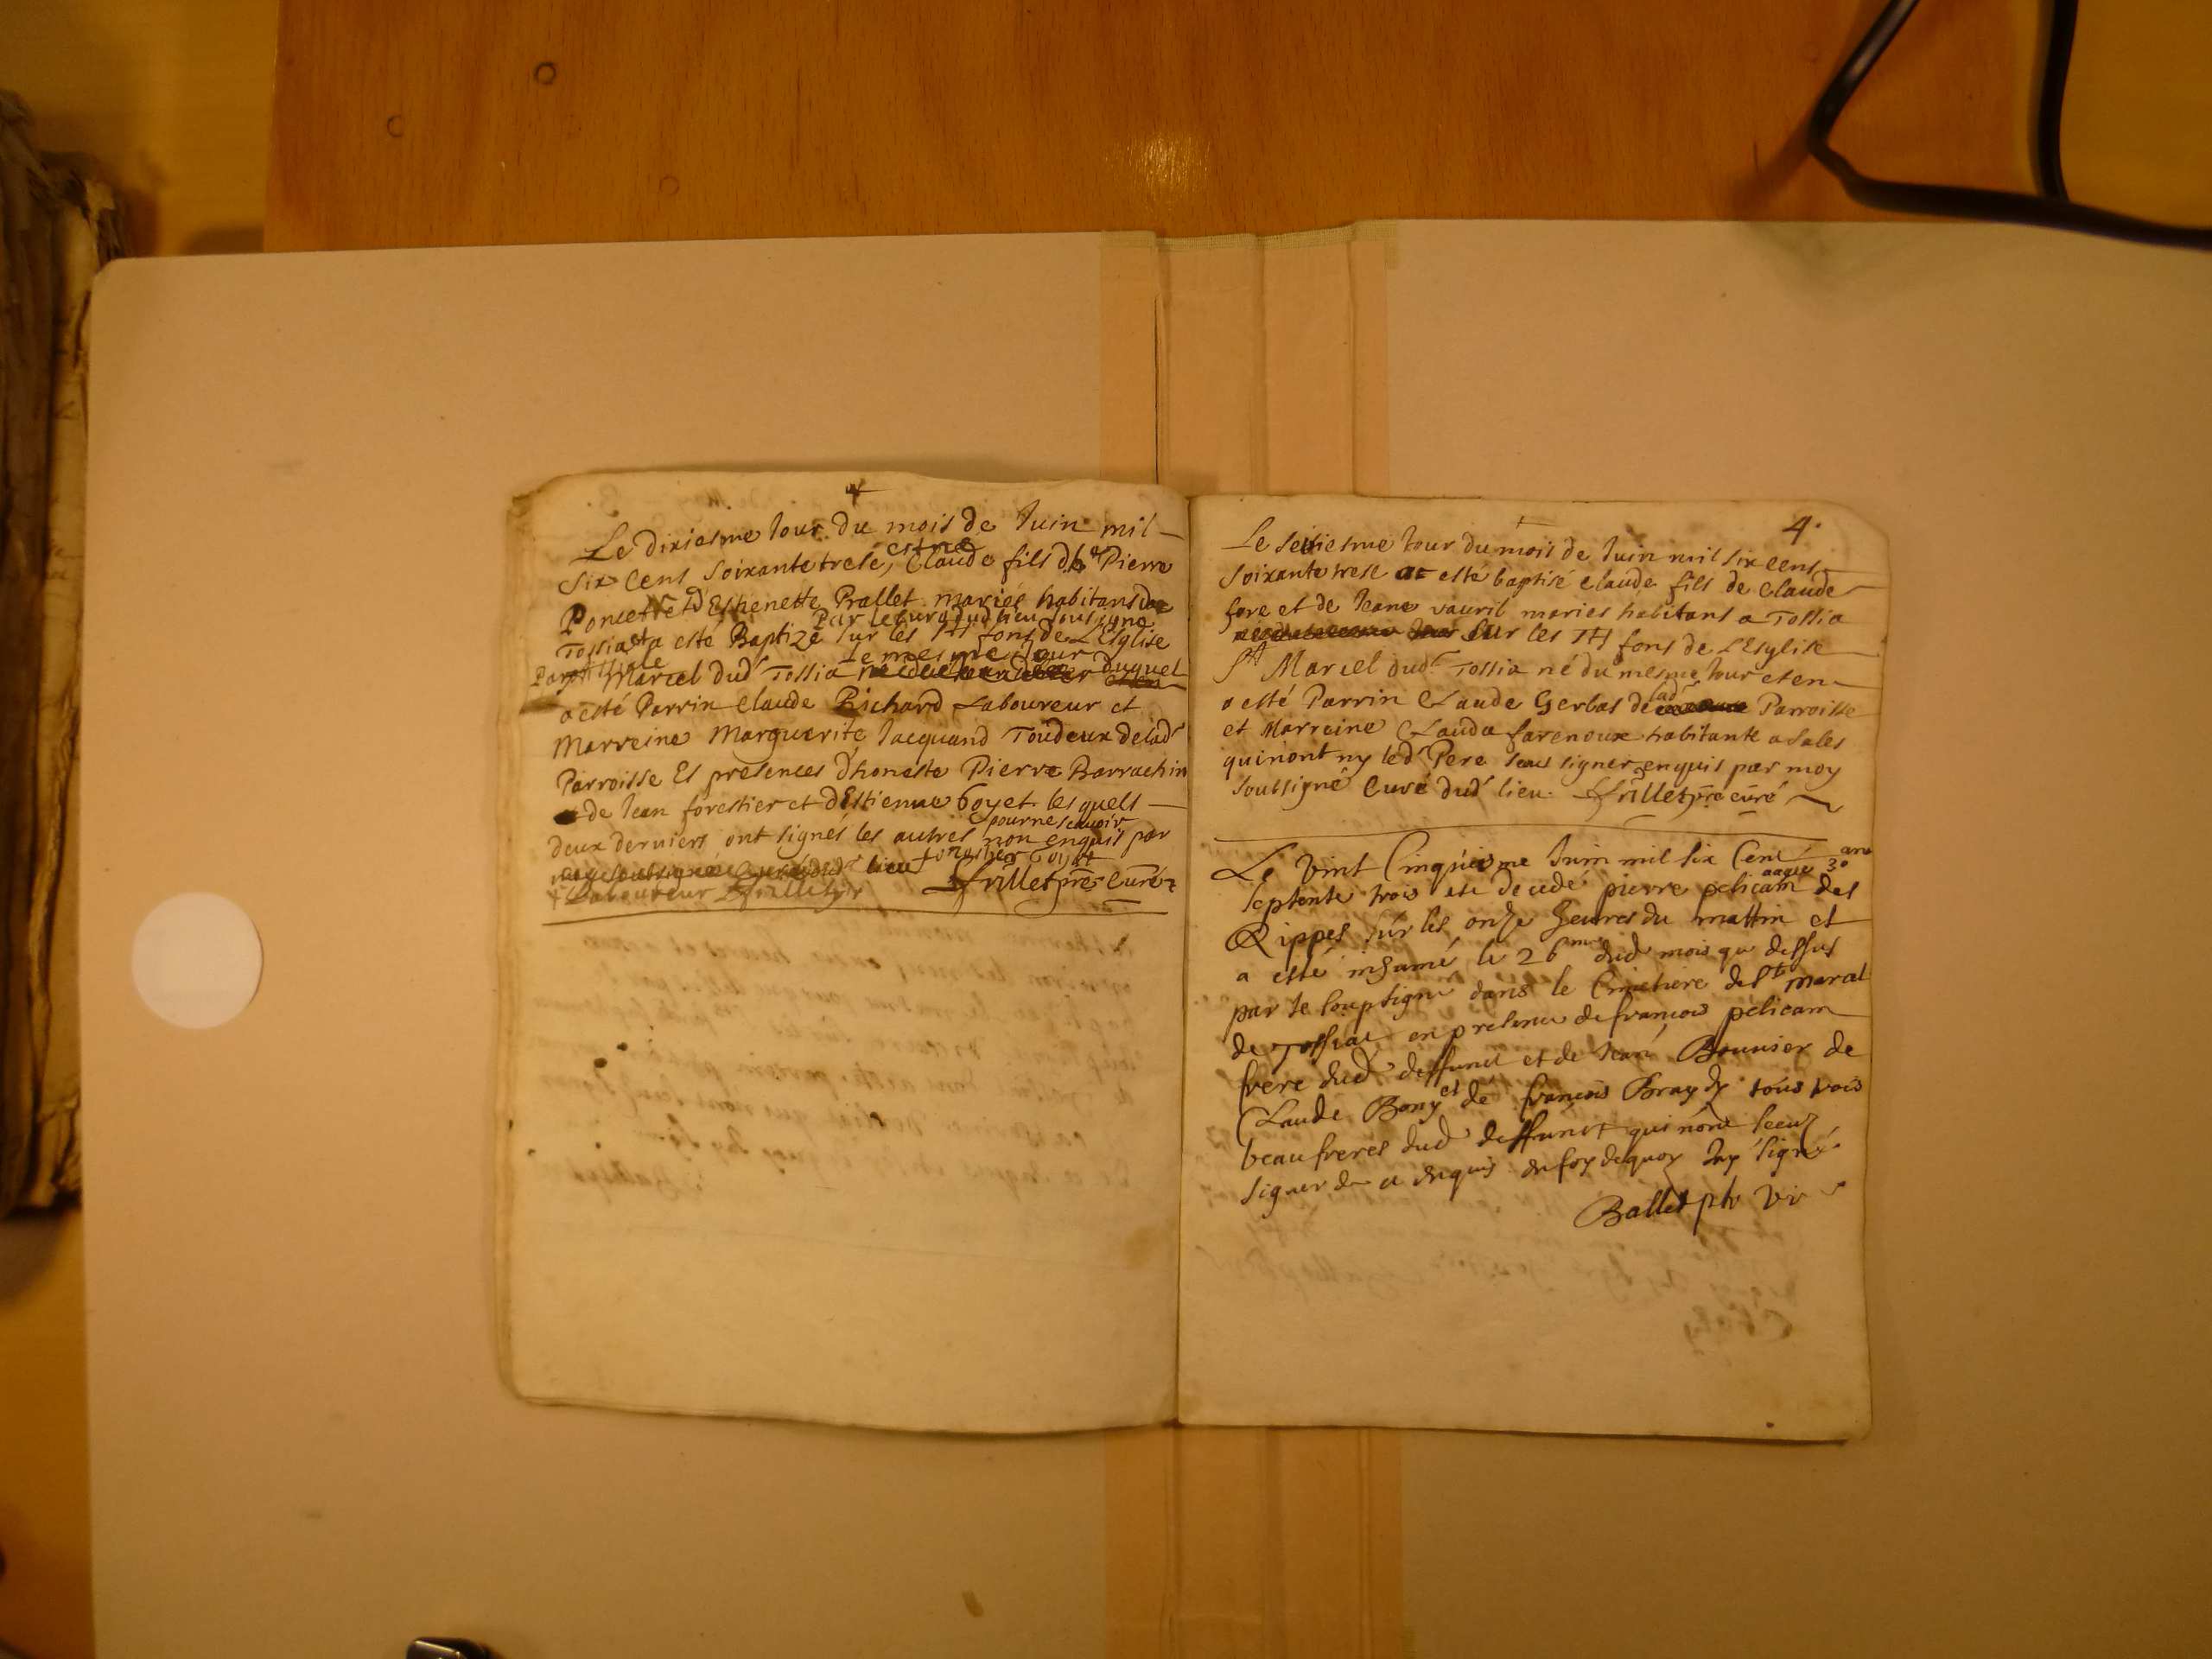 Le dixiesme Jour du mois de Juin mil
est né
Six Cens Soixante trese, Claude fils de Pierre
Poncet et d'Estienette Prallet mariés habitans de
Par le curé dud lieu sousigné
Tossia et a esté Baptizé sur les Sts fons de L'Esglise
Le mesme jour
St Marcel dud Tossia duquel
a esté Parrin Claude Richard Laboureur et
Marreine Marguerite Jacquand Toudeux de lad
Parroisse Es presences d'honeste Pierre Barrachin
de Jean forestier et d'Estienne Goyet lesquels
pour ne scavoir
deux derniers ont signés les autres non enquis par
lieu forestier Goyet
Laboureur frillet pre curé
4.
Le sesiesme Jour du mois de Juin mil six cens
Soixante trese a esté baptisé Claude fils de Claude
fore et de Jeane vauril mariés habitans a Tossia
sur les Sts fons de L'Esglise
St Marcel dud Tossia né du mesme Jour et en
a esté Parrin Claude Gerbas de lad Parroisse
et Marraine Clauda farenoux habitante a Sales
qui n'ont ny led Pere sceu signer enquis par moy
soubsigné Curé dud lieu. frillet pre curé
Le vint Cinquiesme Juin mil six Cent
aagé 30 ans
septente trois est decedé pierre pelicam des
Rippes sur les onze heures du mattin et
a esté inhumé le 26me dud mois que dessus
par Je soupsigné dans le Cimetiere de St marcel
de Tossiat en presence de francois pelicam
frere dud deffunct et de Jean Bounier de
Claude Bony et de francois Braydy tous trois
beaufreres dud deffunct qui n'ont sceu
signer de ce enquis en foy de quoy Jay signé
Ballet pbr vi